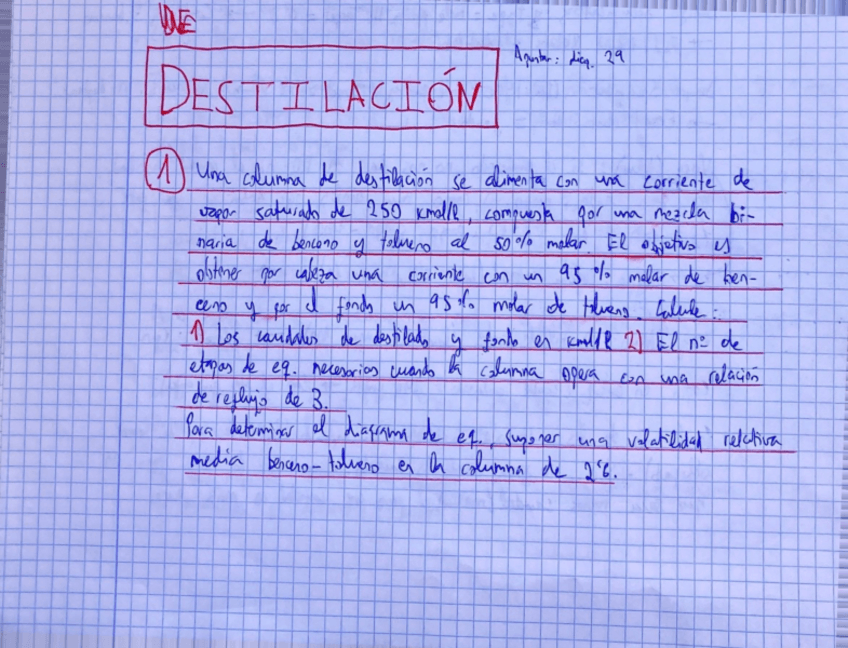 DE
DESTILACIÓN
Apuntar: diap. 29
1 Una columna de destilación se alimenta con una corriente de
vapor saturado de 250 kmol/h, compuesta por una mezcla bi-
naria de benceno y tolueno al 50% molar. El objetivo es
obtener por cabeza una corriente con un 95% molar de ben-
ceno y por el fondo un 95% molar de tolueno. Calcule:
1) Los caudales de destilado y fondo en kmol/h 2) El nº de
etapas de eq. necesarias cuando la columna opera con una relación
de reflujo de 3.
Para determinar el diagrama de eq., suponer una volatilidad relativa
media benceno-tolueno en la columna de 2'6.